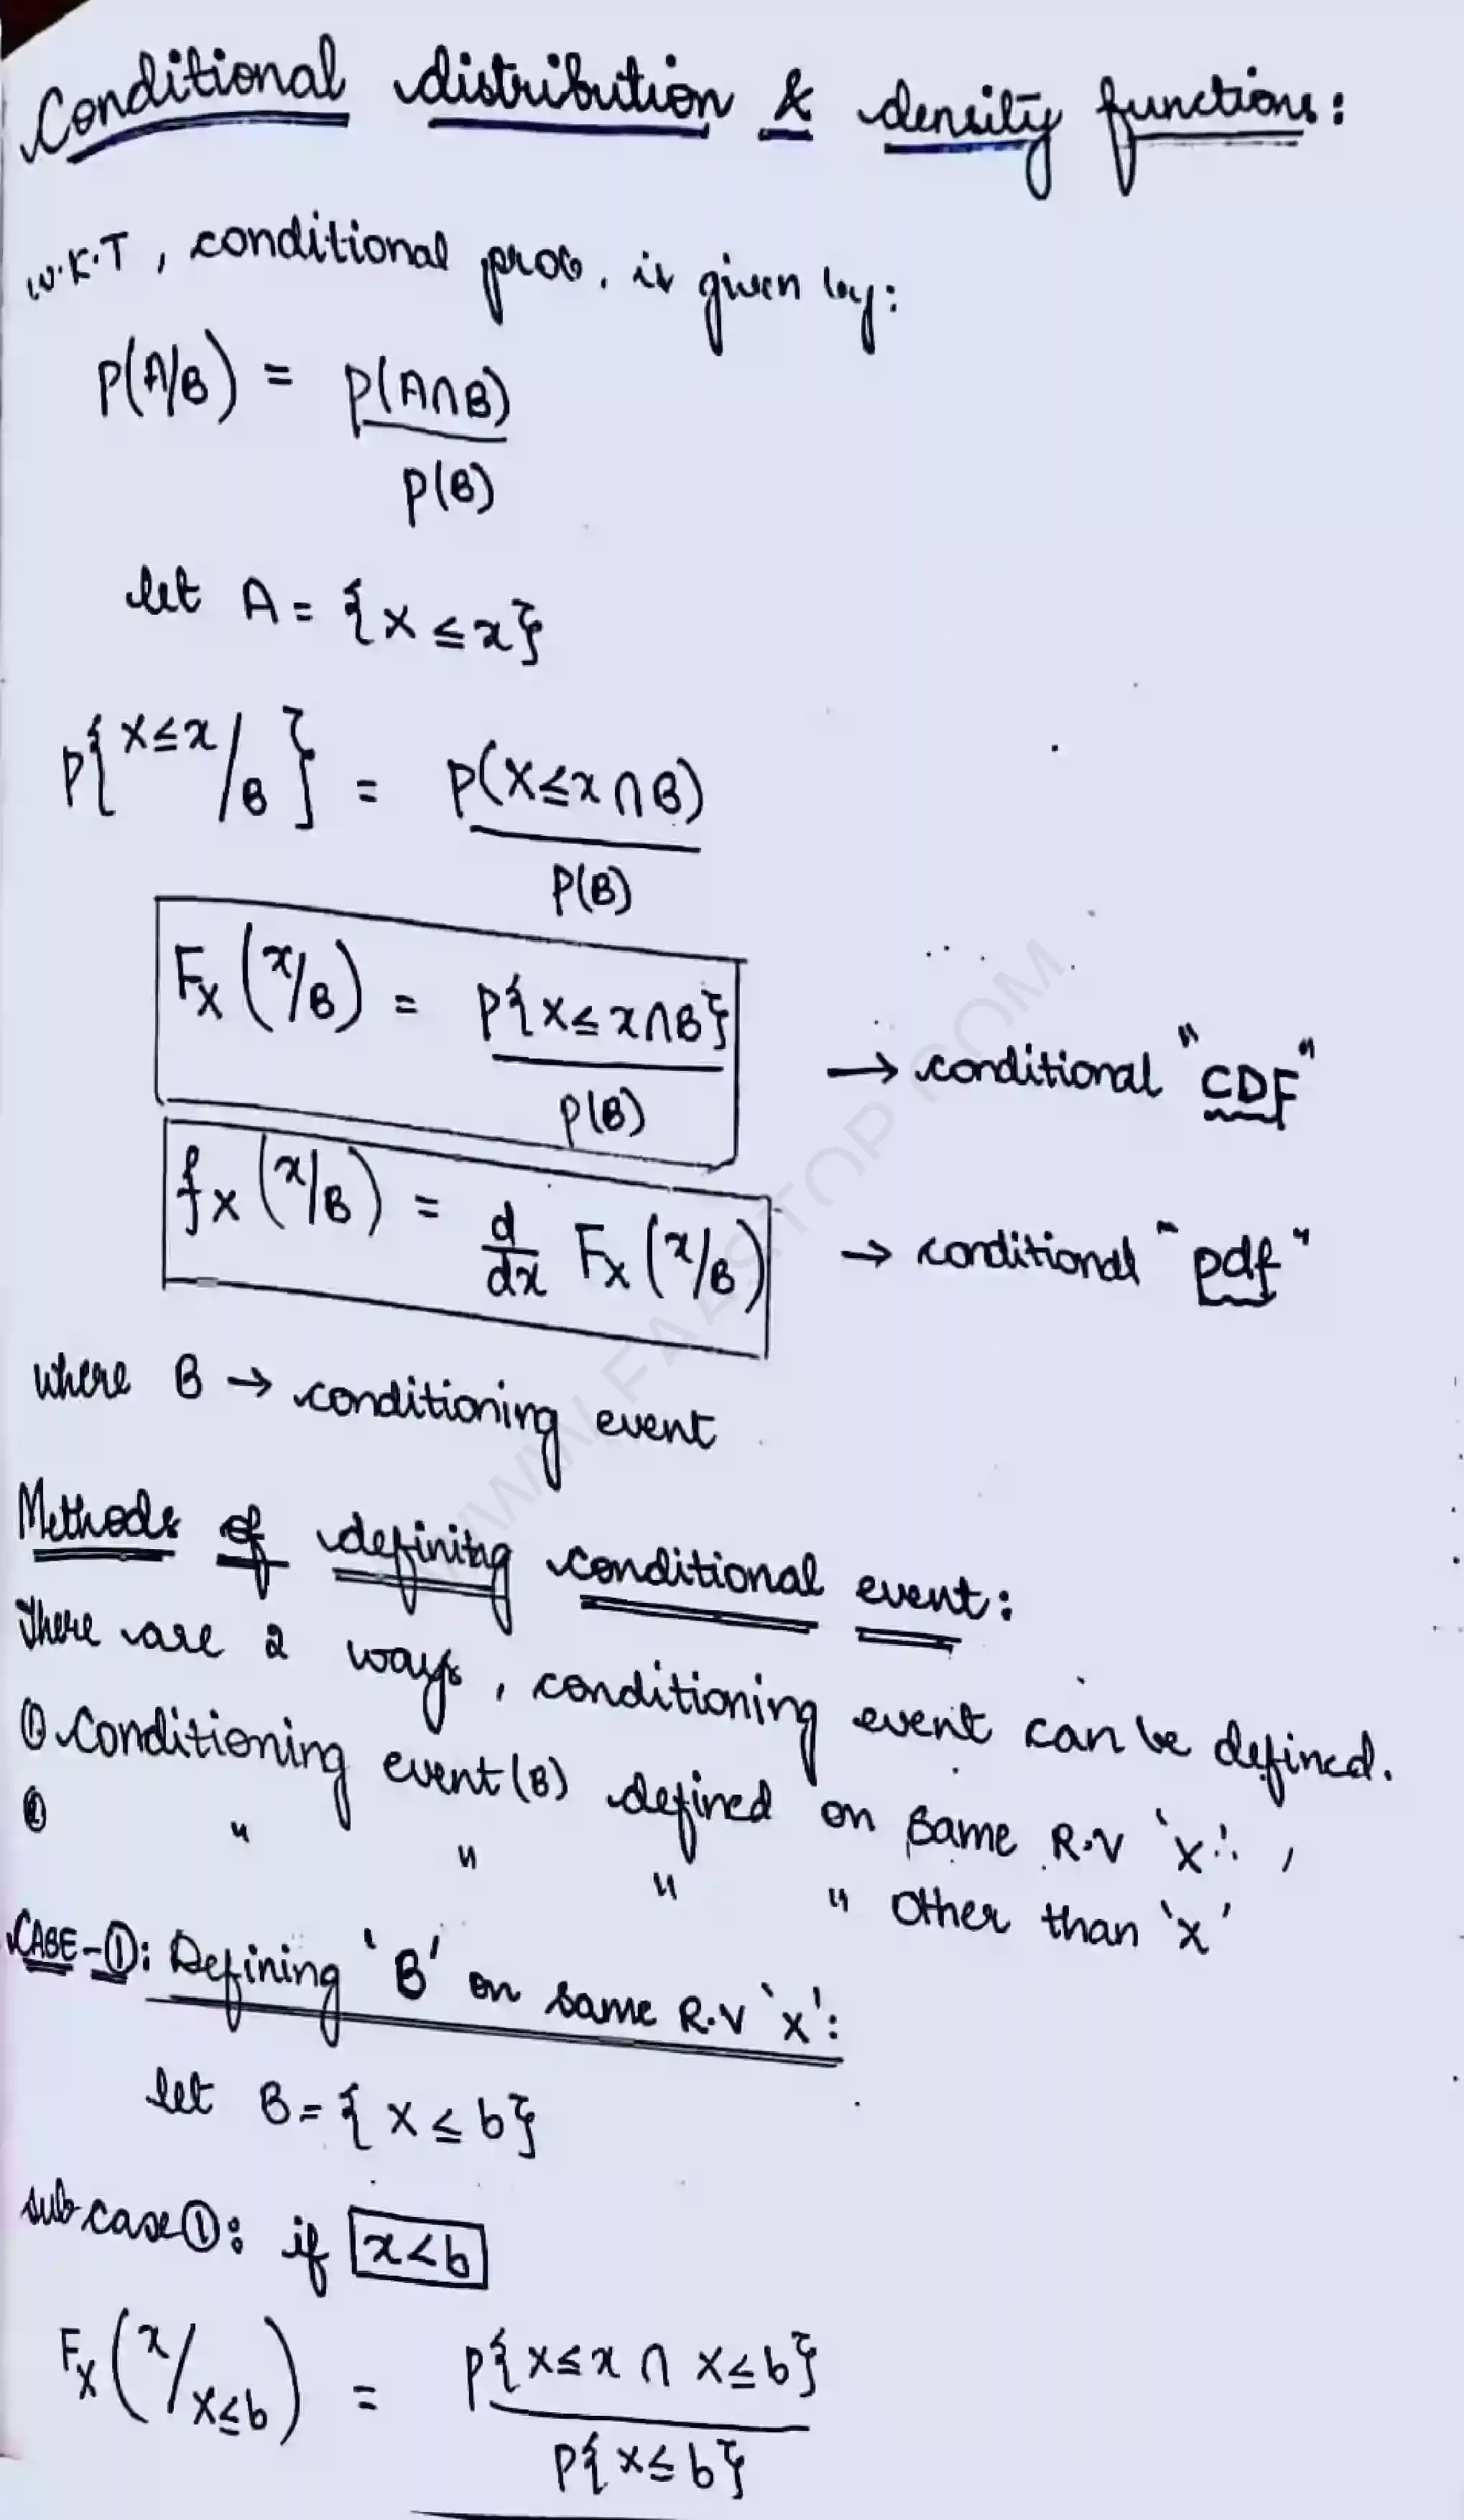 Conditional distribution & density functions:
W.K.T, conditional prob. is given by:
P(A/B) = P(A∩B)
P(B)
let A = {X ≤ x}
P{X≤x/B} = P(X≤x∩B)
P(B)
F_X(x/B) = P{X≤x∩B} → conditional "CDF"
P(B)
f_X(x/B) = d/dx F_X(x/B) → conditional "pdf"
where B → conditioning event
Methods of defining conditional event:
There are 2 ways, conditioning event can be defined.
① Conditioning event(B) defined on same R.V 'X'. ,
② " " " " other than 'X'
CASE-①: Defining 'B' on same R.V 'X':
let B = {X ≤ b}
subcase①: if x<b
F_X(x/X≤b) = P{X≤x ∩ X≤b}
P{X≤b}